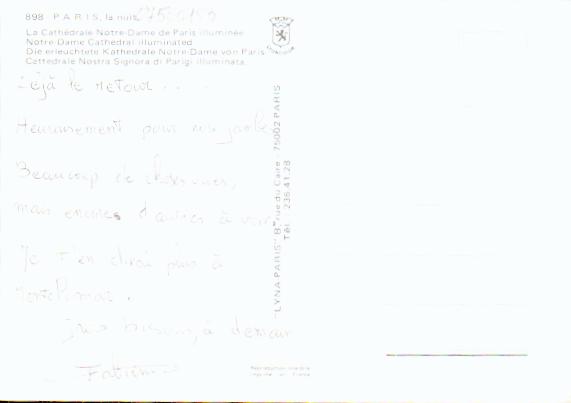 898 PARIS, la nuit
La Cathédrale Notre-Dame de Paris illuminée
Notre Dame Cathedral illuminated
Die erleuchtete Kathedrale Notre-Dame von Paris
Cattedrale Nostra Signora di Parigi illuminata
Déjà le retour...
Heureusement pour nos jambes
Beaucoup de choses vues,
mais encore d'autres à voir
Je t'en dirai plus à
Montélimar.
bisous, à demain
"LYNA-PARIS" 8, rue du Caire 75002 PARIS
Tél. : 236.41.28
Reproduction interdite
Imprimé en France